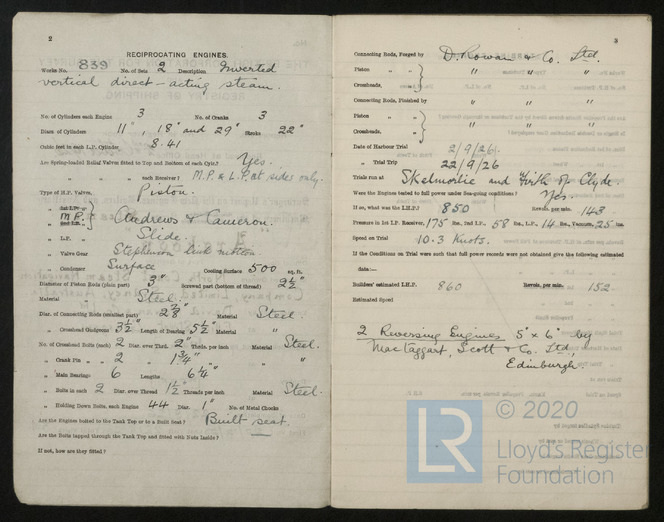 2
RECIPROCATING ENGINES.
Works No. 839 No. of Sets 2 Description Inverted
vertical direct-acting steam.
No. of Cylinders each Engine 3 No. of Cranks 3
Diam of Cylinders 11", 18" and 29" Stroke 22"
Cubic feet in each L.P. Cylinder 8.41
Are Spring-loaded Relief Valves fitted to Top and Bottom of each Cylr.? Yes.
" " " each Receiver? M.P. & L.P. at sides only.
Type of H.P. Valves, Piston.
M.P. " Andrews & Cameron.
" L.P. " Slide.
" Valve Gear Stephenson link motion.
" Condenser Surface Cooling Surface 500 sq. ft.
Diameter of Piston Rods (plain part) 3" Screwed part (bottom of thread) 2½"
Material " Steel.
Diar. of Connecting Rods (smallest part) 2⅞" Material Steel
" Crosshead Gudgeons 3½" Length of Bearing 5½" Material
No. of Crosshead Bolts (each) 2 Diam. over Thrd. 2" Thrds. per inch Material Steel.
" Crank Pin " " 2 " 1¾" " "
" Main Bearings 6 Lengths 6¼"
" Bolts in each 2 Diar. over Thread 1½" Threads per inch Material Steel.
" Holding Down Bolts, each Engine 44 Diar. 1" No. of Metal Chocks
Are the Engines bolted to the Tank Top or to a Built Seat? Built seat.
Are the Bolts tapped through the Tank Top and fitted with Nuts Inside?
If not, how are they fitted?
3
Connecting Rods, Forged by D. Rowan & Co. Ltd.
Piston " " " " "
Crossheads, " " " "
Connecting Rods, Finished by " " "
Piston " " " " "
Crossheads, " " " "
Date of Harbour Trial 2/9/26.
" Trial Trip 22/9/26
Trials run at Skelmorlie and Firth of Clyde.
Were the Engines tested to full power under Sea-going conditions? Yes.
If so, what was the I.H.P.? 850 Revols. per min. 143
Pressure in 1st I.P. Receiver, 175 lbs., 2nd I.P., 58 lbs., L.P., 14 lbs., Vacuum, 25 ins.
Speed on Trial 10.3 Knots.
If the Conditions on Trial were such that full power records were not obtained give the following estimated
data:—
Builders' estimated I.H.P. 860 Revols. per min. 152
Estimated Speed
2 Reversing Engines 5" x 6" by
MacTaggart, Scott & Co. Ltd.,
Edinburgh
LR
© 2020
Lloyd's Register
Foundation